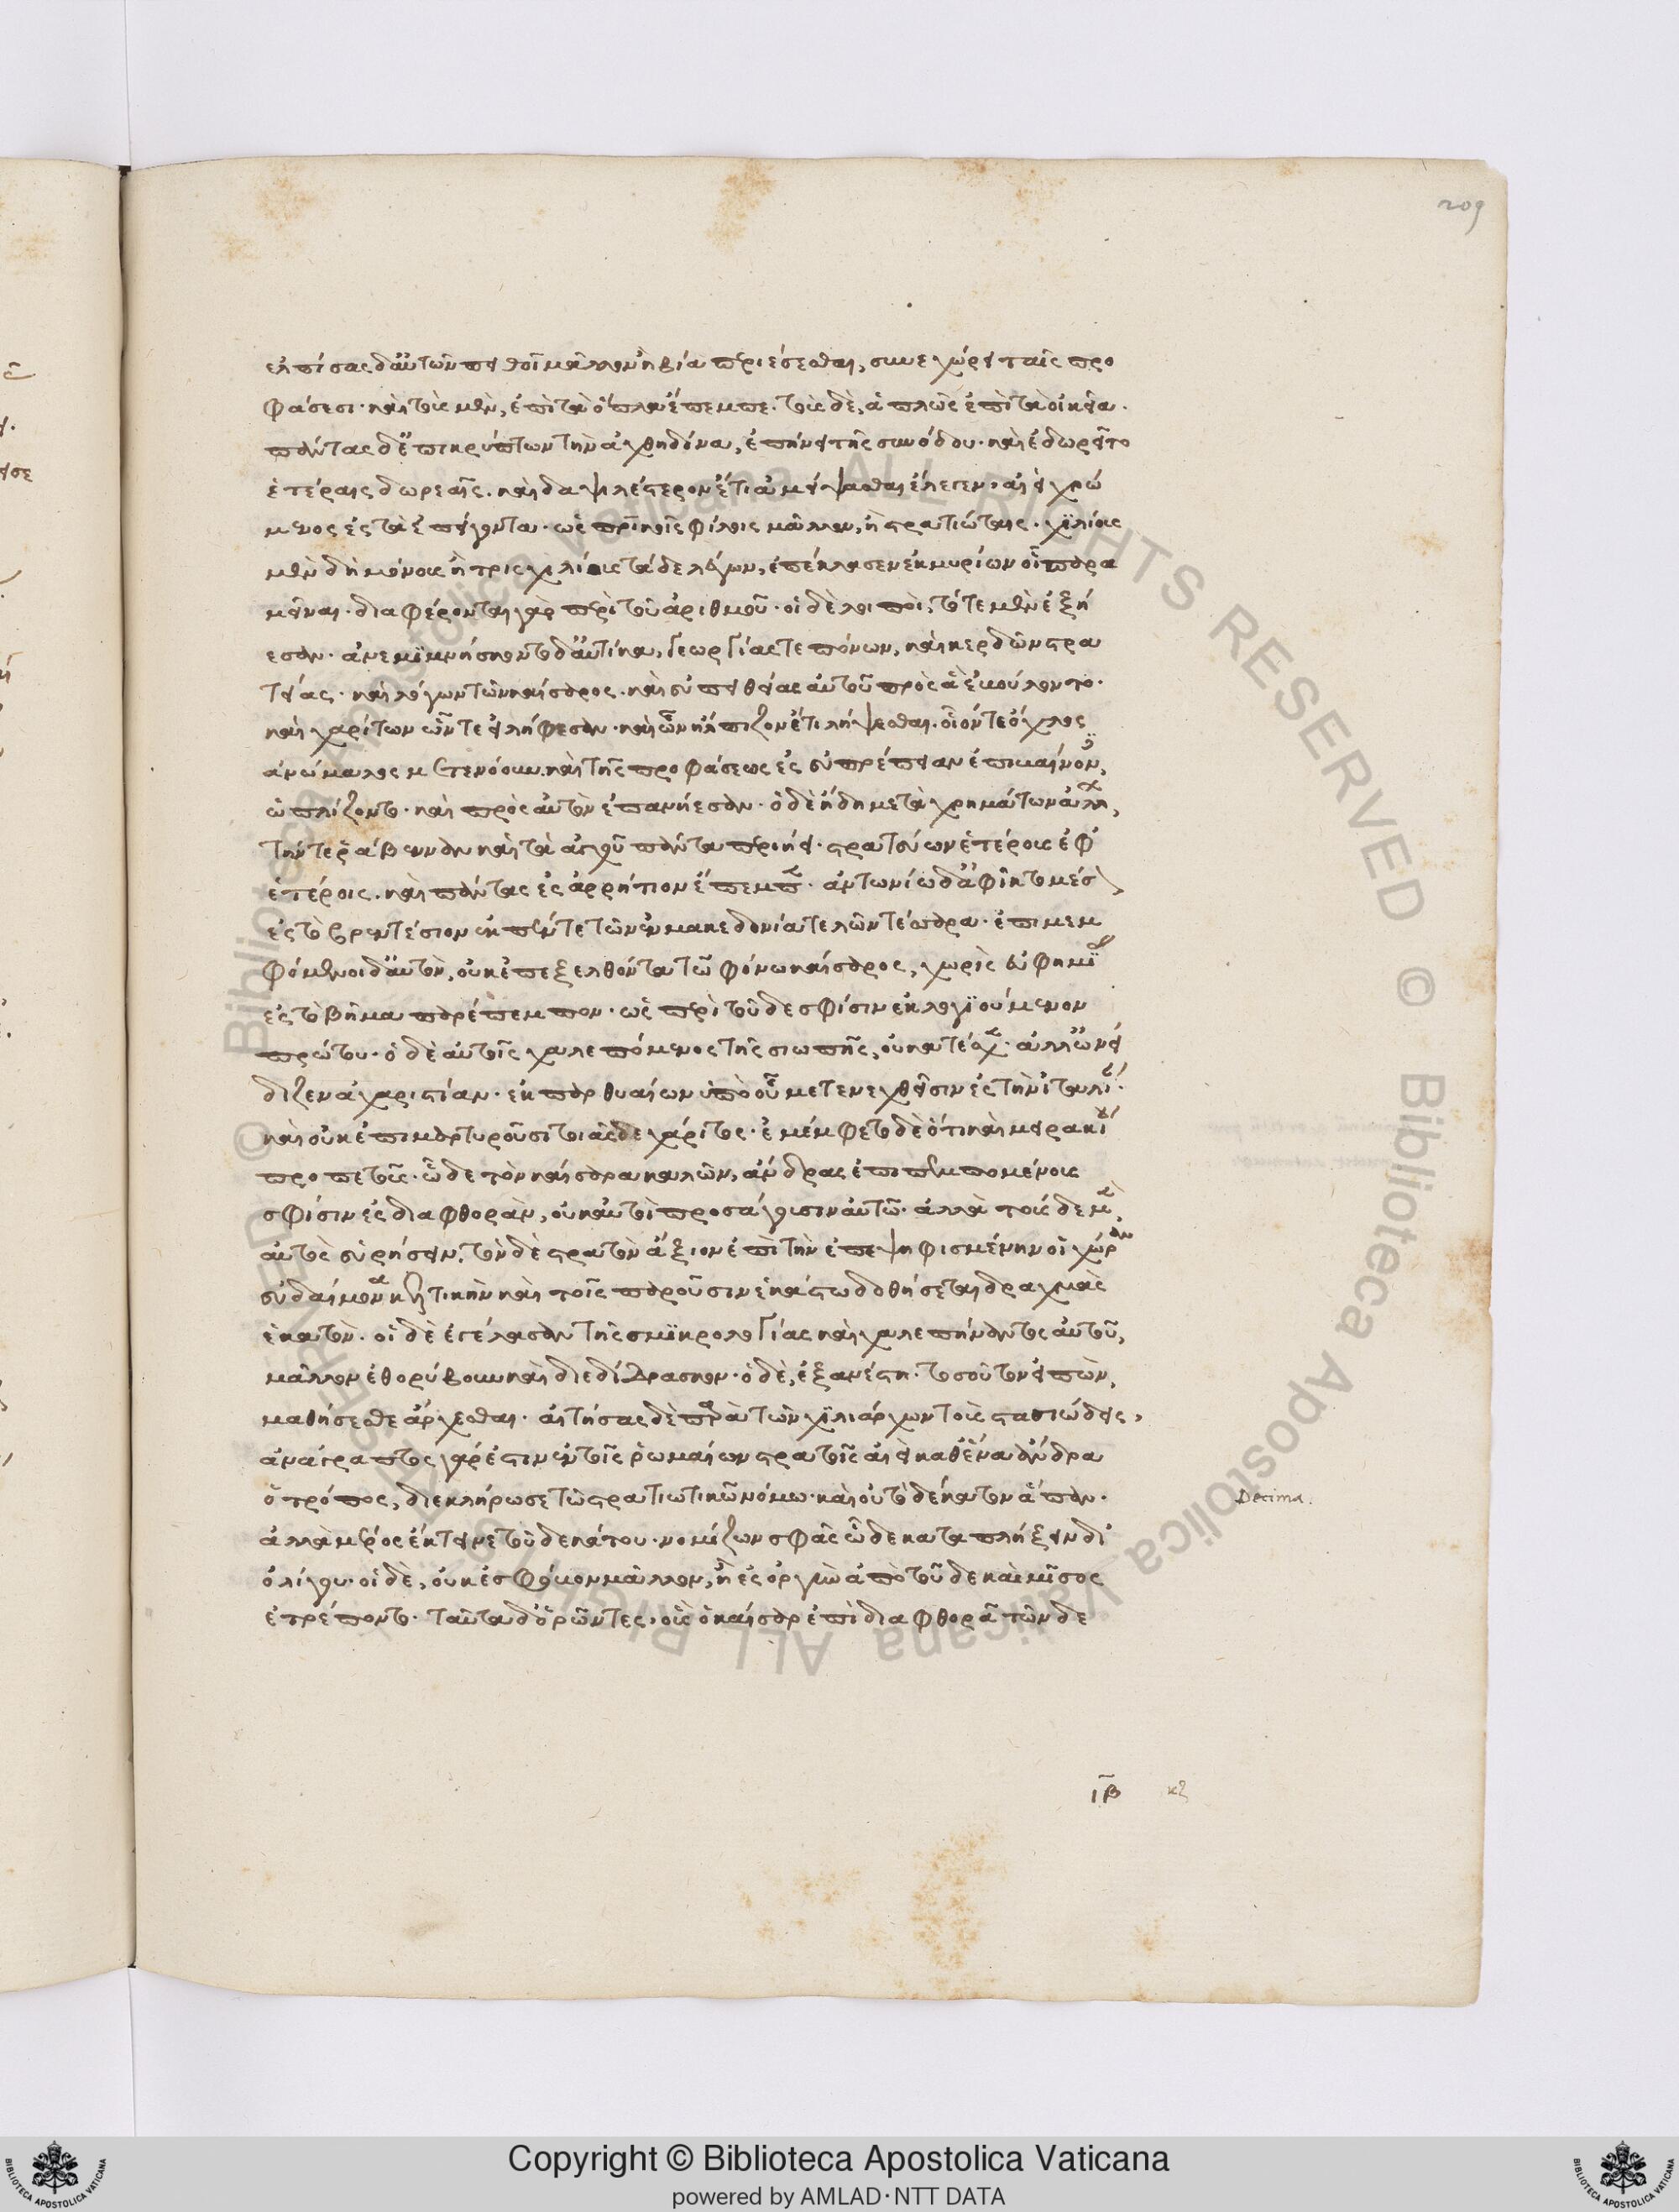 209
ἐλπίσας δ' αὐτῶν πειθοῖ μᾶλλον ἢ βίᾳ περιέσεσθαι, συνεχώρει ταῖς προ
φάσεσι· καὶ τοὺς μὲν, ἐπὶ τὰ ὅπλα ἔπεμπε. τοὺς δὲ, ἁπλῶς ἐπὶ τὰ οἰκεῖα.
πάντας δ' ἐπικρύπτων τὴν ἀχθηδόνα, ἐπῄνει τῆς συνόδου· καὶ ἐδωρεῖτο
ἑτέραις δωρεαῖς. καὶ δαψιλέστερον ἔτι ἀμείψασθαι ἔλεγεν· αἰεὶ χρώ
μενος ἐς τὰ ἐπείγοντα· ὡς πατρικοῖς φίλοις μᾶλλον, ἢ στρατιώταις· χιλίους
μὲν δὴ μόνους ἢ τρισχιλίους τάδε λέγων, ἐπέκλασεν ἐκ μυρίων οἱ παρα
μεῖναι. διαφέρονται γὰρ περὶ τοῦ ἀριθμοῦ· οἱ δὲ λοιποὶ, τότε μὲν ἐξῄ
εσαν· ἀνεμιμνήσκοντο δ' αὐτίκα, γεωργίας τε πόνων, καὶ κερδῶν στρα
τείας· καὶ λόγων τῶν καίσαρος· καὶ εὐπειθείας αὐτοῦ πρὸς ἃ ἐβούλοντο·
καὶ χαρίτων ὧν τε εἰλήφεσαν· καὶ ὧν ἤλπιζον ἔτι λήψεσθαι. οἷόν τε ὄχλος
ἀνώμαλος μετενόουν. καὶ τῆς προφάσεως ἐς εὐπρέπειαν ἐπιβαίνον,
ὡπλίζοντο· καὶ πρὸς αὐτὸν ἐπανῄεσαν· ὁ δὲ ἤδη μετὰ χρημάτων ἄλλ
τήν τε ῥάβενναν καὶ τὰ ἀγχοῦ πάντα περιῄει. στρατεύων ἑτέρους ἐφ'
ἑτέροις. καὶ πάντας ἐς ἀρρήτιον ἔπεμπε· ἀντωνίῳ δ' ἀφῖκτο μέσ
ἐς τὸ βρεντέσιον ἐκ πέντε τῶν ἐν μακεδονίᾳ τελῶν τέσσαρα· ἐπιμεμ
φόμενοι δ' αὐτὸν, οὐκ ἐπεξελθόντα τῷ φόνῳ καίσαρος, χωρὶς εὐφημί
ἐς τὸ βῆμα παρέπεμπον· ὡς περὶ τοῦδε σφίσιν ἐκλογιούμενον
πρώτου· ὁ δὲ αὐτοῖς χαλεπόμενος τῆς σιωπῆς, οὐ κατέσχε· ἀλλ' ὠνεί
διζεν ἀχαριστίαν· ἐκ παρθυαίων ὑπὸ οὗ μετενεχθεῖσιν ἐς τὴν ἰταλί·
καὶ οὐκ ἐπιμαρτυροῦσι τοιᾶσδε χάριτος· ἐμέμφετο δὲ ὅτι καὶ μειρακί
προπετοῦς· ὧδε τὸν καίσαρα καλῶν, ἄνδρας ἐπιπεμπομένους
σφίσιν ἐς διαφθορὰν, οὐκ αὐτοὶ προσάγουσιν αὐτῷ· ἀλλὰ τούσδε μ
αὐτὸς εὑρήσειν. τὸν δὲ στρατὸν ἄξιον ἐπὶ τὴν ἐπεψηφισμένην οἱ χώραν
εὐδαίμονα κελτικὴν καὶ τοῖς παροῦσιν ἑκάστῳ δοθήσεται δραχμὰς
ἑκατόν. οἱ δὲ ἐγέλασαν τῆς σμικρολογίας καὶ χαλεπήναντος αὐτοῦ,
μᾶλλον ἐθορύβουν καὶ διεδίδρασκον· ὁ δὲ, ἐξανέστη· τοσοῦτον εἰπὼν,
μαθήσεσθε ἄρχεσθαι. αἰτήσας δὲ παρὰ τῶν χιλιάρχων τοὺς στασιώδεις,
ἀνάγραπτος γάρ ἐστιν ἐν τοῖς ῥωμαίων στρατοῖς αἰεὶ καθ' ἕνα ἄνδρα
ὁ τρόπος, διεκλήρωσε τῷ στρατιωτικῷ νόμῳ· καὶ οὐ τὸ δέκατον ἅπαν.
ἀλλὰ μέρος ἔκτεινε τοῦ δεκάτου· νομίζων σφᾶς ὧδε καταπλήξειν δι'
ὀλίγου· οἱ δὲ, οὐκ ἐς φόβον μᾶλλον, ἢ ἐς ὀργὴν ἀπὸ τοῦδε καὶ μῖσος
ἐτρέποντο· ταῦτα δ' ὁρῶντες, οὓς ὁ καίσαρ ἐπὶ διαφθορᾷ τῶνδε
Decima.
ιβ κξ
Copyright © Biblioteca Apostolica Vaticana
powered by AMLAD·NTT DATA